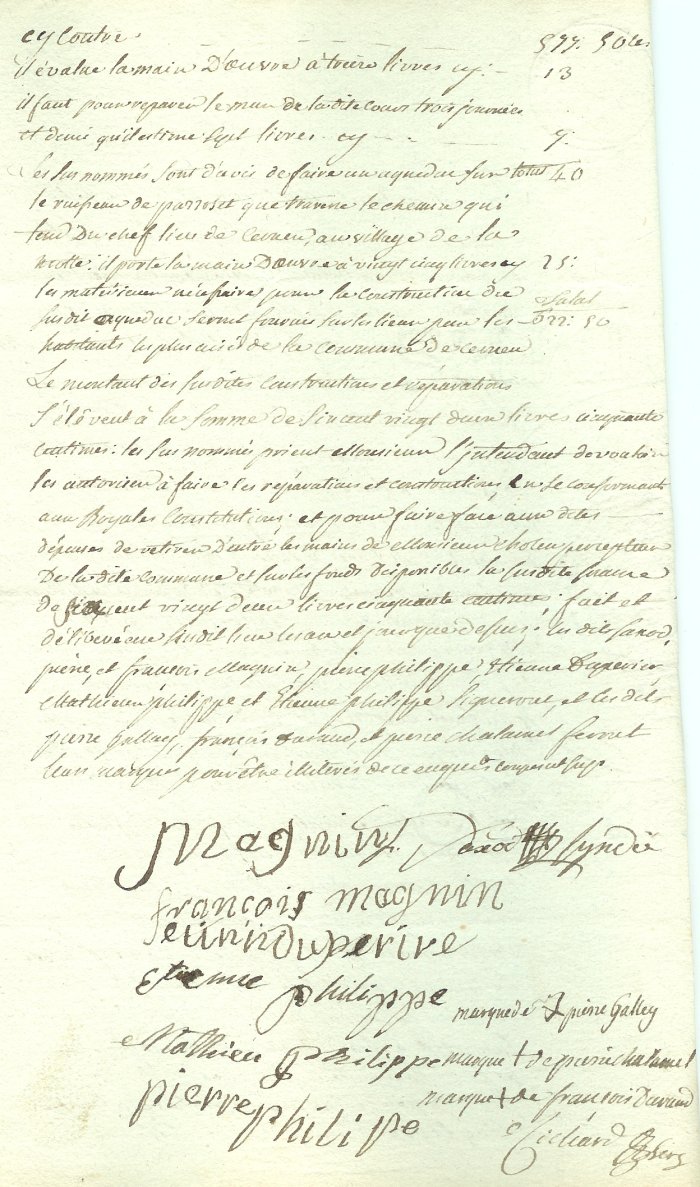 cy Contre 577: 50 ces
il évalue la main D'œuvre à treize livres cy: 13
il faut pour reparer le mur de la dite cour trois journées
et demie qu'il estime sept livres cy 7:
Les sus nommés sont d'avis de faire un aqueduc sur total 40
le ruisseau de que traverse le chemin qui
tend Du chef lieu de au village de la
motte: il porte la main D'œuvre à vingt cinq livres cy 25:
les matériaux nécessaire pour la construction du Total
susdit aqueduc seront fournis sur les lieux par les 622: 50
habitants les plus aisés de la commune de
Le montant des susdites constructions et réparations
s'élèvent à la somme de six cent vingt deux livres cinquante
centimes: les sus nommés prient Monsieur l'jntendant de vouloir
les autoriser à faire les réparations et constructions en se conformant
aux Royales Constitutions: et pour faire face aux dites
dépenses de retirer d'entre les mains de Monsieur percepteur
De la dite commune et sur les fonds Disponibles la susdite somme
de six cent vingt deux livres cinquante centimes: fait et
délibéré au susdit lieu les an et jour que dessus; les dits
pierre, et françois Magnin, pierre philippe, Etienne Duperier
Mathieu philippe et Etienne philippe signeront, et les dits
pierre Galley, françois Durand, et pierre chalamel feront
leur marque pour être illitérés de ce enquis
Magnin Syndic
françois magnin
Duperire
Etienne philippe
marque de pierre Galley
Mathieu philippe marque + de pierre chalamel
marque + de françois Durand
pierre philipe